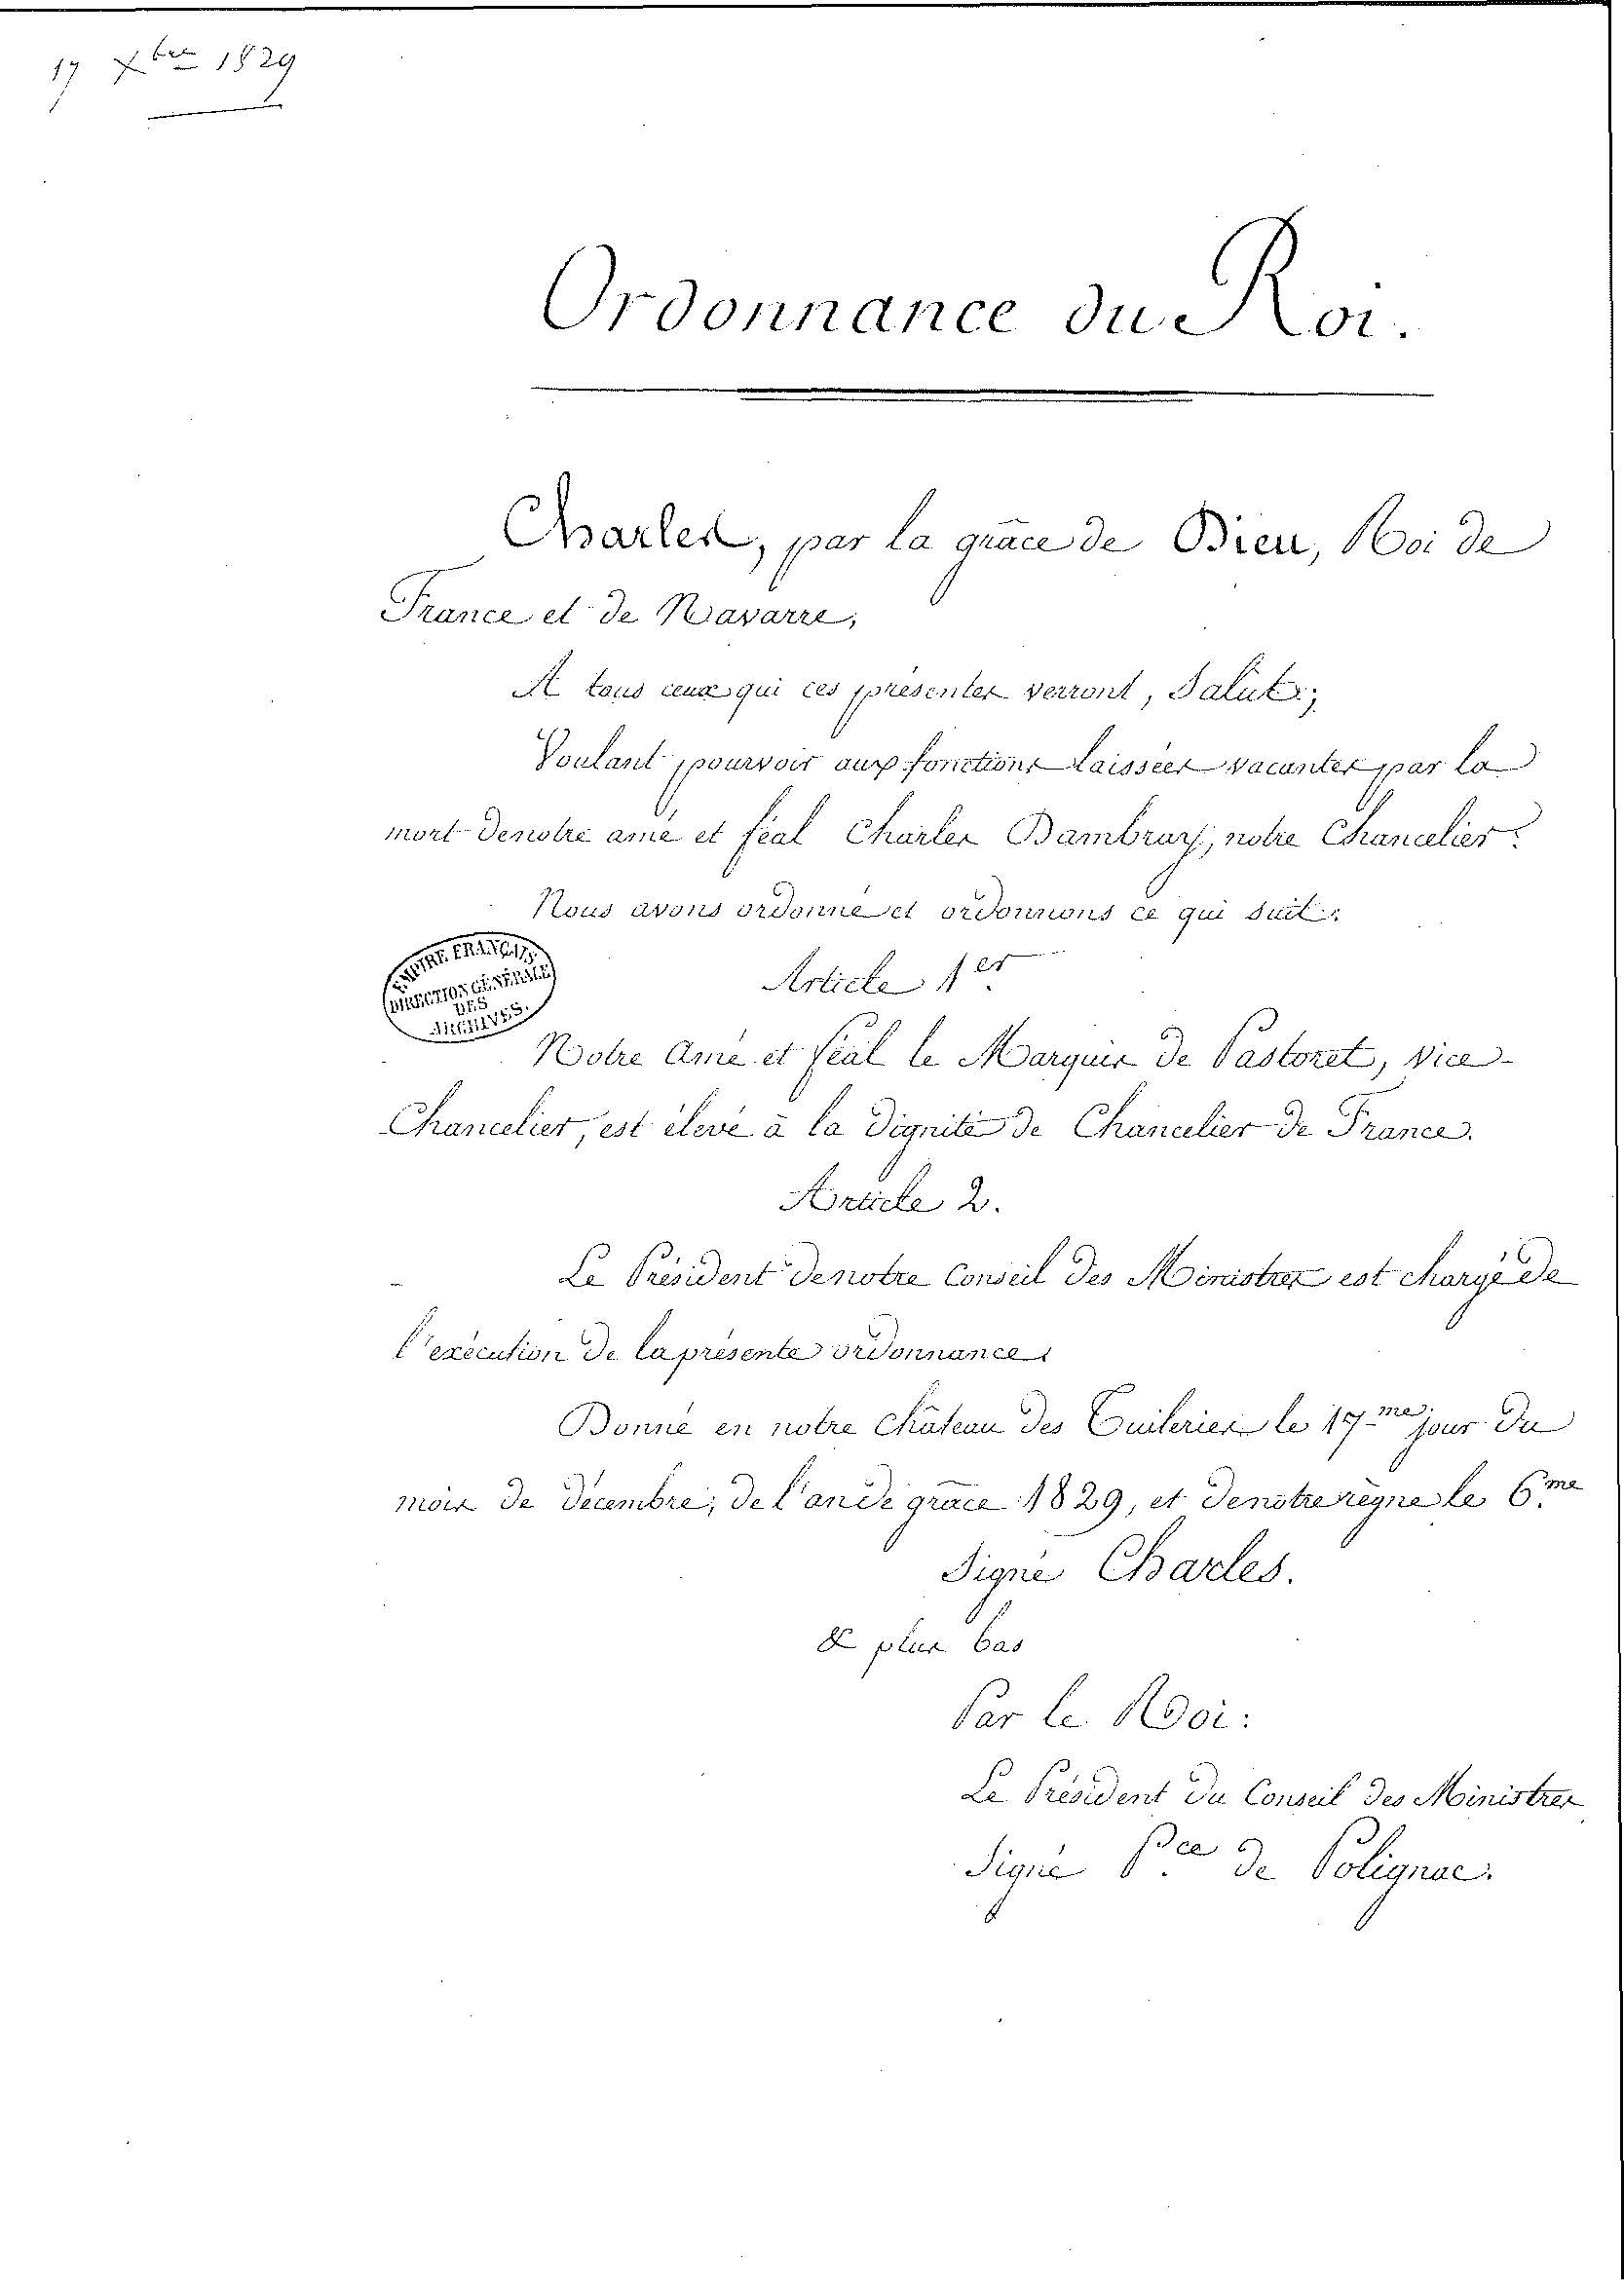 17 Xbre 1829
Ordonnance du Roi.
Charles, par la grâce de Dieu, Roi de
France et de Navarre,
A tous ceux qui ces présentes verront, Salut;
Voulant pourvoir aux fonctions laissées vacantes par la
mort de notre amé et féal Charles Dambray, notre Chancelier:
Nous avons ordonné et ordonnons ce qui suit:
EMPIRE FRANÇAIS
DIRECTION GÉNÉRALE
DES
ARCHIVES.
Article 1er.
Notre Amé et féal le Marquis de Pastoret, Vice-
Chancelier, est élevé à la dignité de Chancelier de France.
Article 2.
Le Président de notre Conseil des Ministres est chargé de
l'exécution de la présente ordonnance.
Donné en notre château des Tuileries le 17me jour du
mois de décembre, de l'an de grâce 1829, et de notre règne le 6me.
Signé Charles.
& plus bas
Par le Roi:
Le Président du Conseil des Ministres
Signé Pce de Polignac.